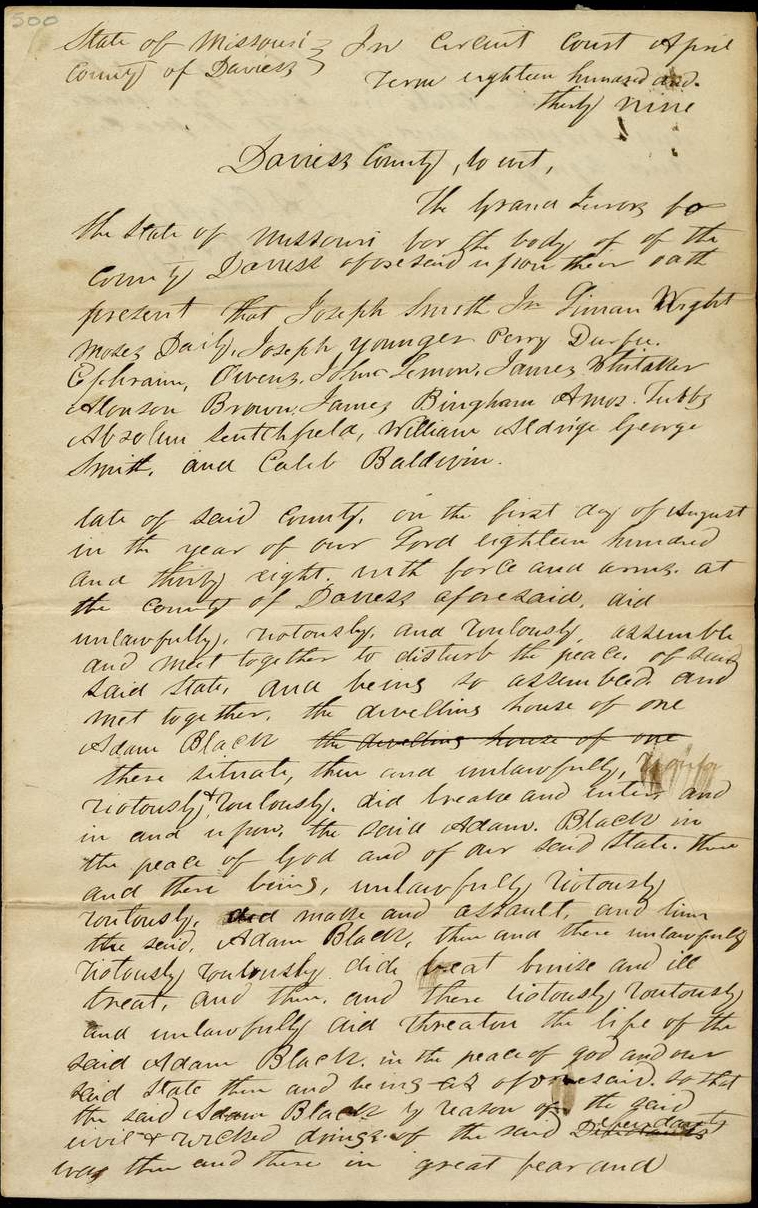 500
State of Missouri } In Circuit Court April
County of Daviess } Term eighteen hundred and
thirty nine
Daviess County, to wit,
The Grand Jurors for
the State of Missouri for the body of of the
County Daviess aforesaid upon their oath
present that Joseph Smith Jr Liman Wight
Moses Daily, Joseph younger Perry Durfee.
Ephraim, Owens, John Lemon, James Whitaker
Alonson Brown, James Bingham Amos. Tubbs
Absolum Scritchfield, William Aldrige George
Smith, and Caleb Baldwin.
late of said County, on the first day of August
in the year of our Lord eighteen hundred
and thirty eight. with force and arms. at
the County of Daviess aforesaid, did
unlawfully, riotously, and routously, assemble
and meet together to disturb the peace, of said
said State, and being so assembled and
met together, the dwelling house of one
Adam Black the dwelling house of one
there situate, then and unlawfully,
riotously & routously, did breake and enter, and
in and upon, the said Adam. Black in
the peace of God and of our said State. then
and there being, unlawfully riotously
routously, did make and assault, and him
the said, Adam Black, then and there unlawfully
riotously routously did beat bruise and ill
treat, and then, and there riotously routously
and unlawfully did threaton the life of the
said Adam Black. in the peace of god and our
said State then and being as aforesaid. so that
the said Adam Black by reason of the said
evil & wicked doings of the said Defendants
was then and there in great fear and